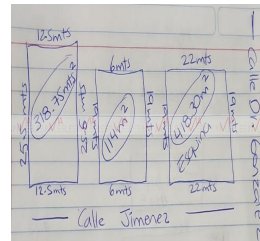 12.5mts
25.5 mts
318.75mts²
25.5 mts
12.5mts
6mts
114m²
19mts
6mts
22mts
418.20m²
esquina
19mts
22mts
Calle Jimenez